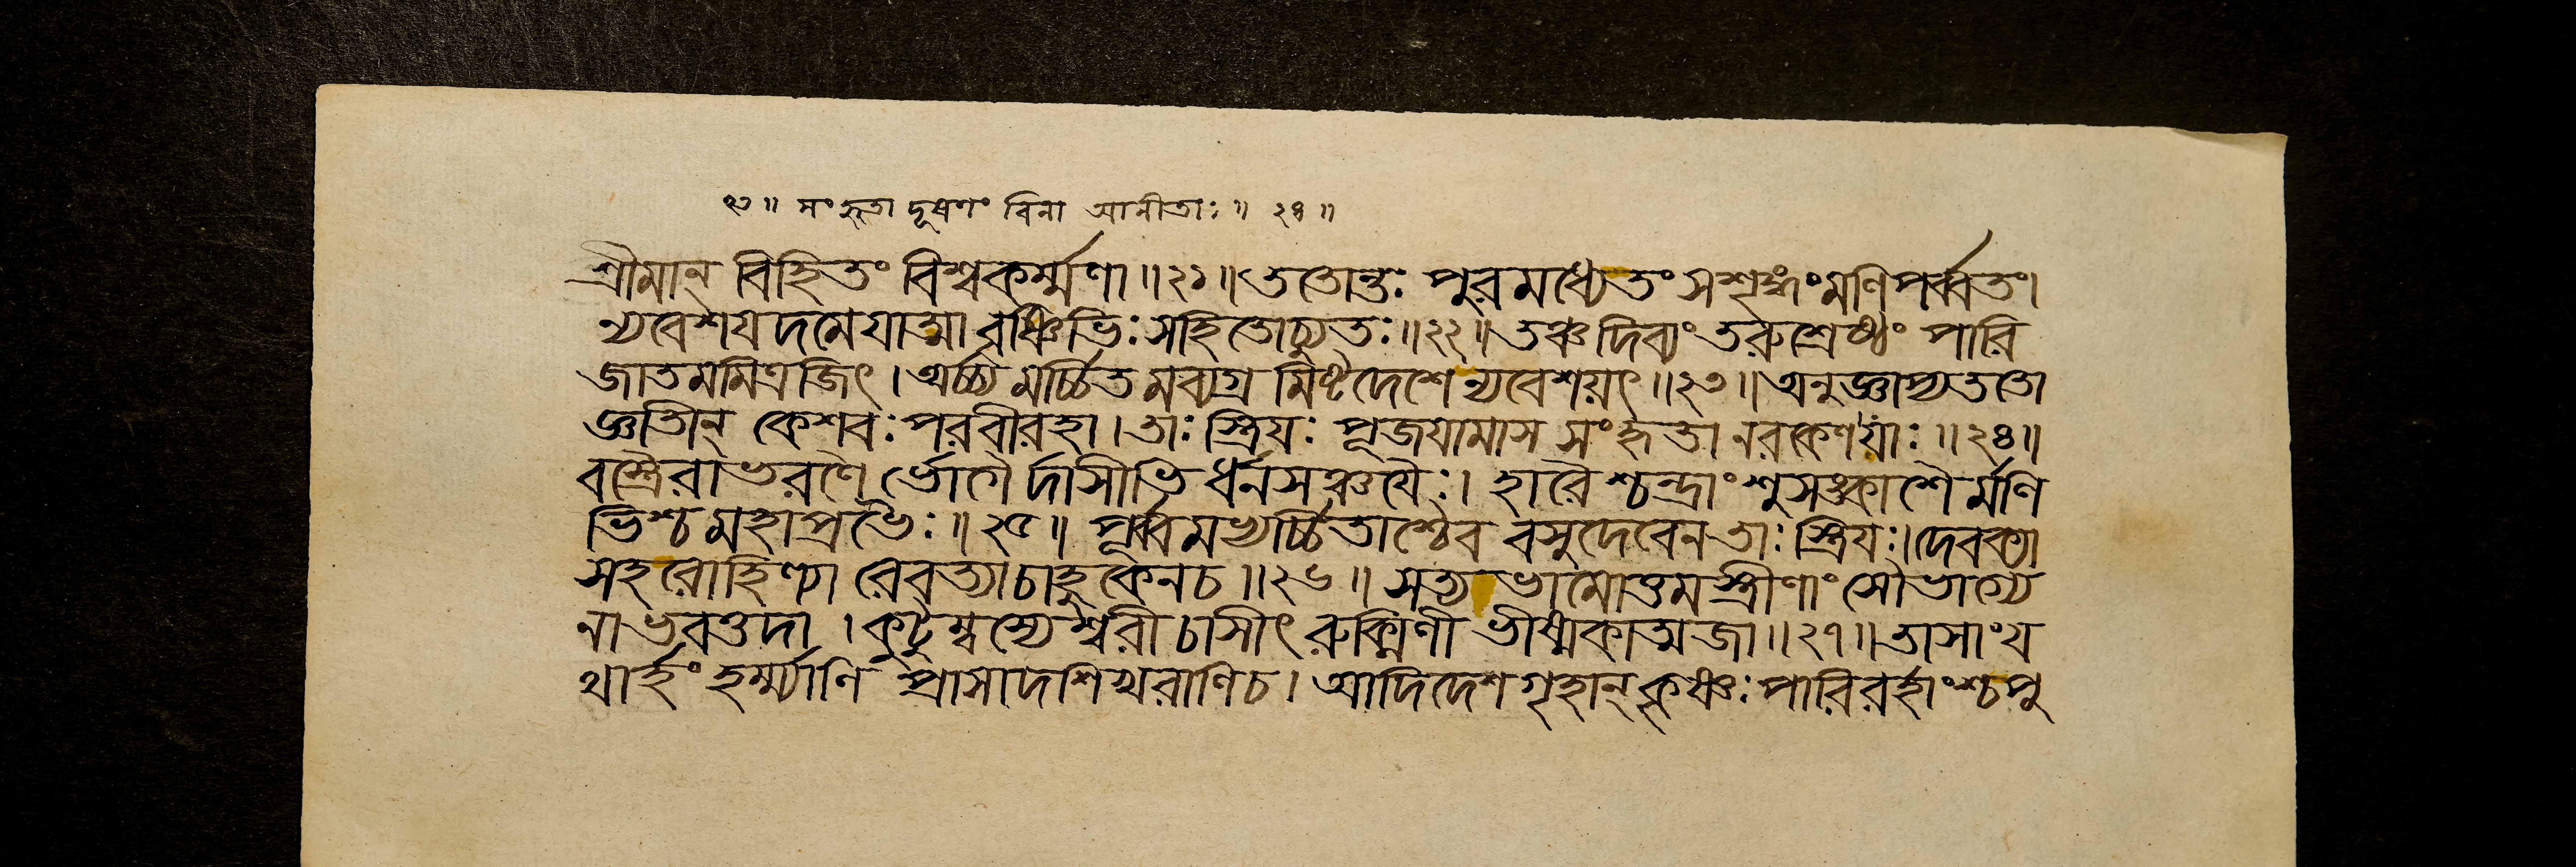 ২৩॥ সংহৃতা দূষণং বিনা আনীতাঃ॥ ২৪॥
শ্রীমান্ বিহিতং বিশ্বকর্ম্মণা॥২১॥ততোন্তঃ পুরমধ্যেতং সশৃঙ্গংমণিপর্ব্বতং।
ন্যবেশযদমেযাত্মা বৃষ্ণিভিঃ সহিতোচ্যুতঃ॥২২॥তঞ্চদিব্যং তরুশ্রেষ্ঠং পারি
জাতমমিত্রজিৎ।অর্চ্চ্য মর্চ্চিত মব্যগ্র মিষ্টদেশে ন্যবেশয়ৎ॥২৩॥অনুজ্ঞাপ্যততো
জ্ঞাতীন্ কেশবঃপরবীরহা।তাঃ স্ত্রিযঃ পূজযামাস সংহৃতা নরকেণযাঃ॥২৪॥
বস্ত্রৈরাভরণৈ র্ভোগৈ র্দাসীভি র্ধনসঞ্চযৈঃ। হারৈ শ্চন্দ্রাংশুসঙ্কাশৈ র্মণি
ভিশ্চ মহাপ্রভৈঃ॥২৫॥ পূর্ব্বমভ্যর্চ্চিতাশ্চৈব বসুদেবেনতাঃ স্ত্রিযঃ।দেবক্যা
সহরোহিণ্যা রেবত্যাচাহুকেনচ॥২৬॥ সত্যভামোত্তমস্ত্রীণাং সৌভাগ্যে
নাভবত্তদা। কুটুম্বস্যেশ্বরী চাসীৎ রুক্মিণী ভীষ্মকাত্মজা॥২৭॥তাসাংয
থার্হং হর্ম্ম্যাণি প্রাসাদশিখরাণিচ। আদিদেশ গৃহান্ কৃষ্ণঃ পারিবর্হাংশ্চপু